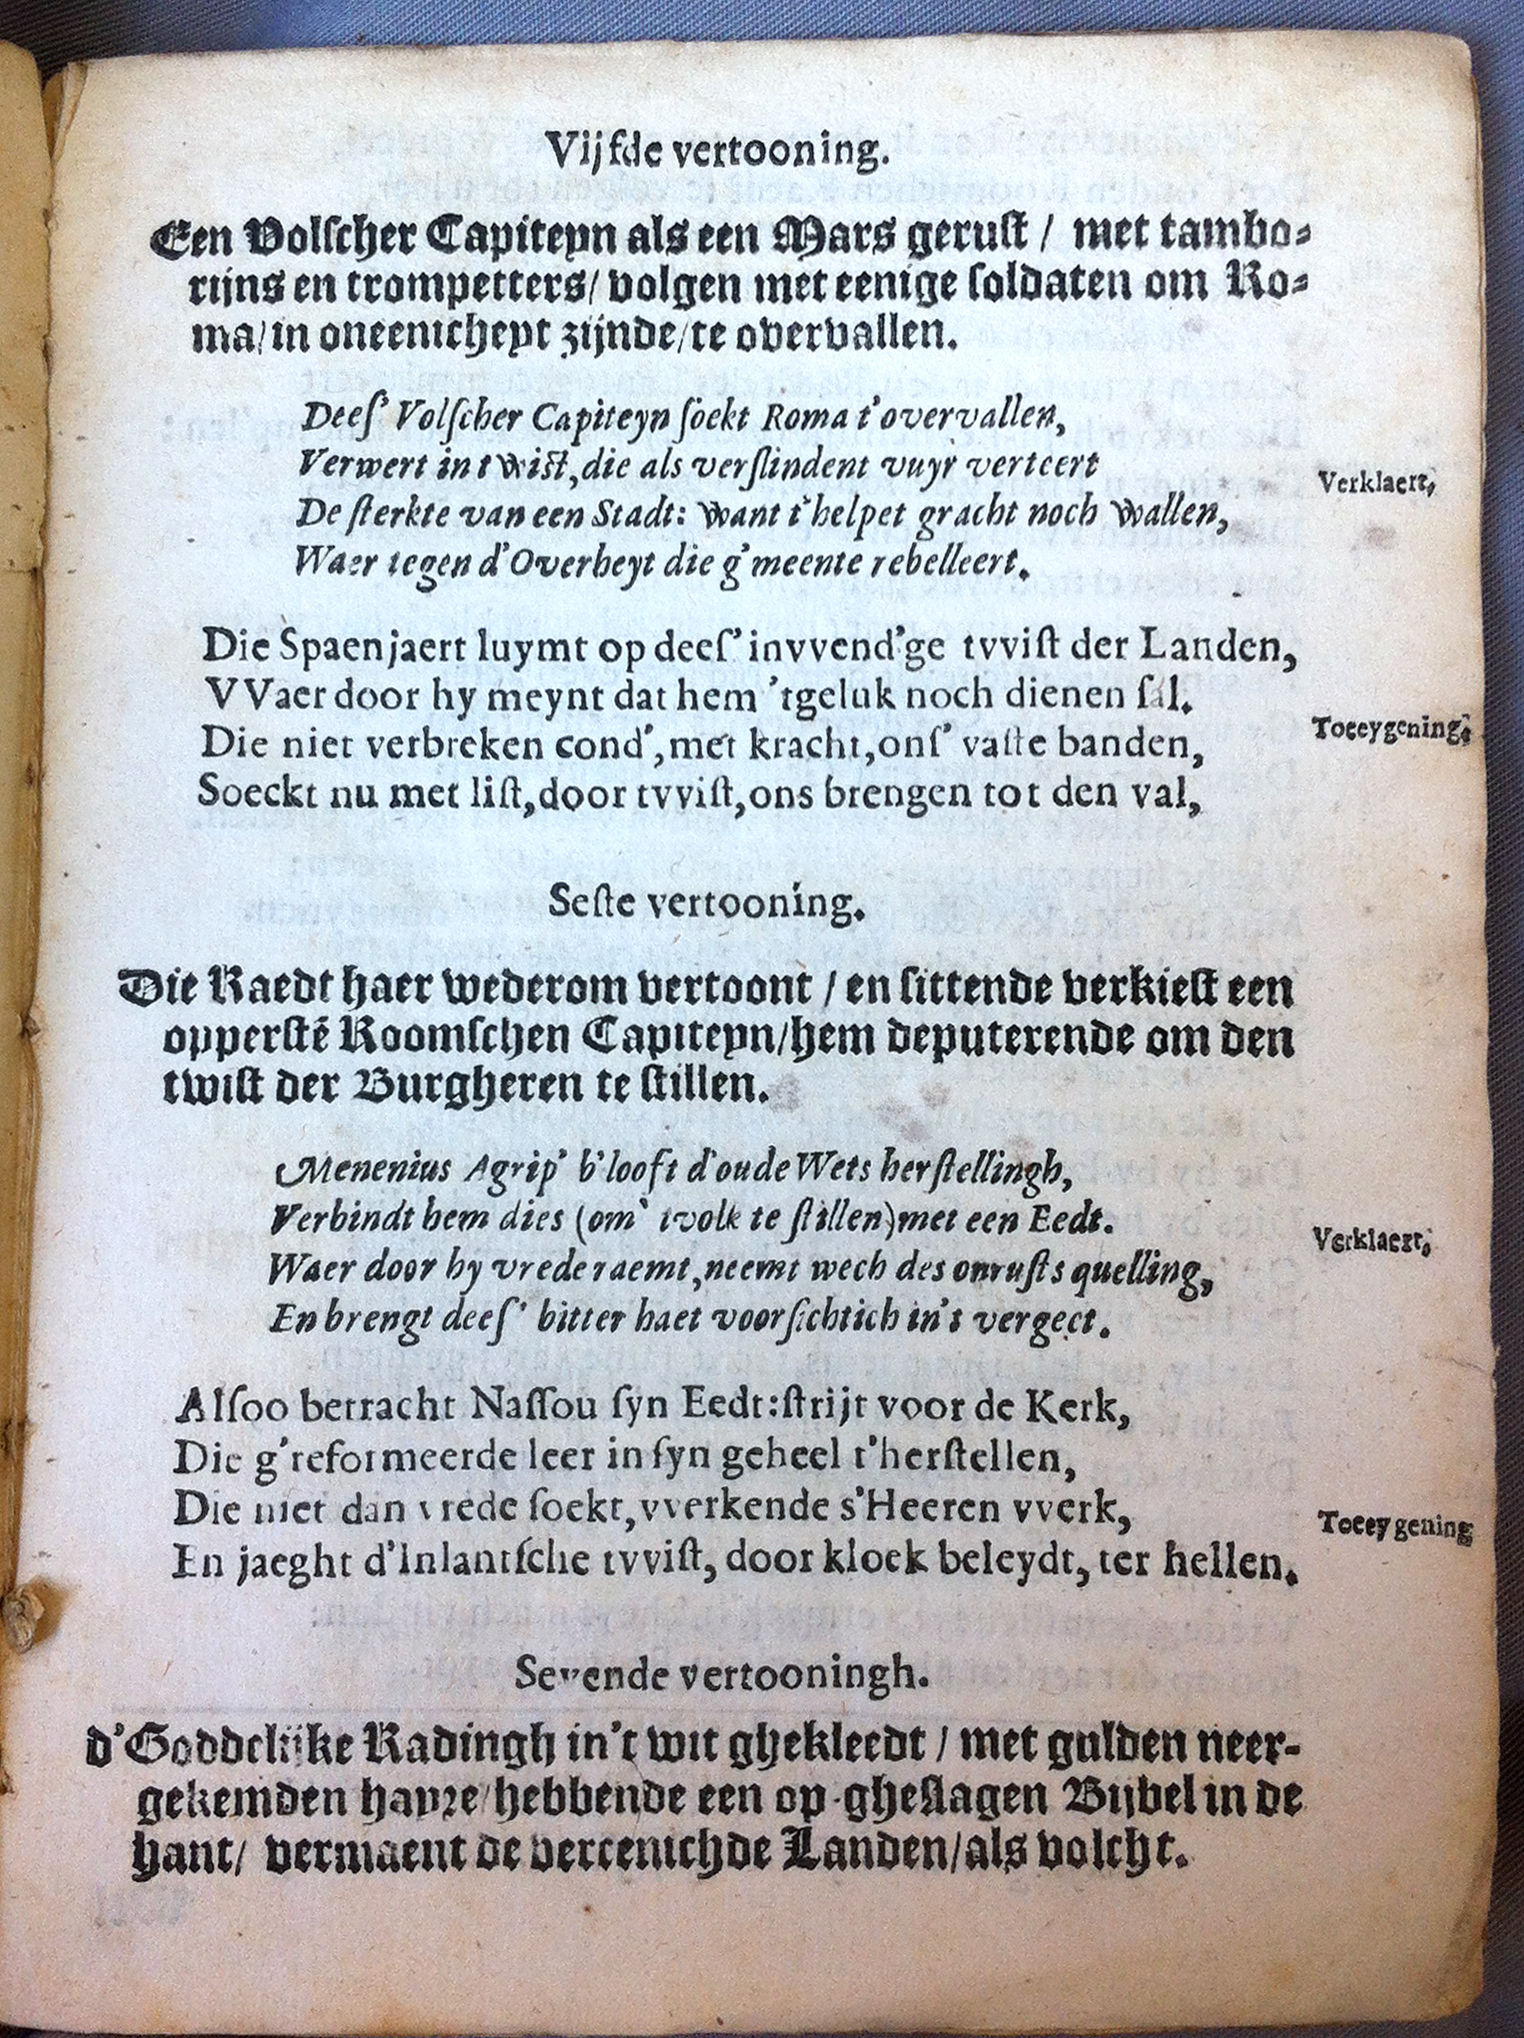 Vijfde vertooning.
Een Volſcher Capiteyn als een Mars geruſt / met tambo-
rijns en trompetters/ volgen met eenige ſoldaten om Ro-
ma/ in oneenicheyt zijnde/ te overvallen.
Deeſ' Volſcher Capiteyn ſoekt Roma t'overvallen,
Verwert in twiſt, die als verſlindent vuyr verteert
De ſterkte van een Stadt: want t'helpet gracht noch wallen,
Verklaert,
Waer tegen d'Overheyt die g'meente rebelleert.
Die Spaenjaert luymt op deeſ' invvend'ge tvviſt der Landen,
VVaer door hy meynt dat hem 'tgeluk noch dienen ſal.
Toeeygening,
Die niet verbreken cond', met kracht, onſ' vaſte banden,
Soeckt nu met liſt, door tvviſt, ons brengen tot den val,
Seſte vertooning.
Die Raedt haer wederom vertoont / en ſittende verkieſt een
opperſtē Roomſchen Capiteyn/ hem deputerende om den
twiſt der Burgheren te ſtillen.
Menenius Agrip' b'looft d'oude Wets herſtellingh,
Verbindt hem dies (om' tvolk te ſtillen) met een Eedt.
Verklaert,
Waer door hy vrede raemt, neemt wech des onruſts quelling,
En brengt deeſ' bitter haet voorſichtich in't vergeet.
Alſoo betracht Naſſou ſyn Eedt: ſtrijt voor de Kerk,
Die g'reformeerde leer in ſyn geheel t'herſtellen,
Die niet dan vrede ſoekt, vverkende s'Heeren vverk,
Toeeygening
En jaeght d'Inlantſche tvviſt, door kloek beleydt, ter hellen.
Sevende vertooningh.
d'Goddelijke Radingh in't wit ghekleedt / met gulden neer-
gekemden hayre/ hebbende een op-gheſlagen Bijbel in de
hant/ vermaent de vereenichde Landen/ als volcht.